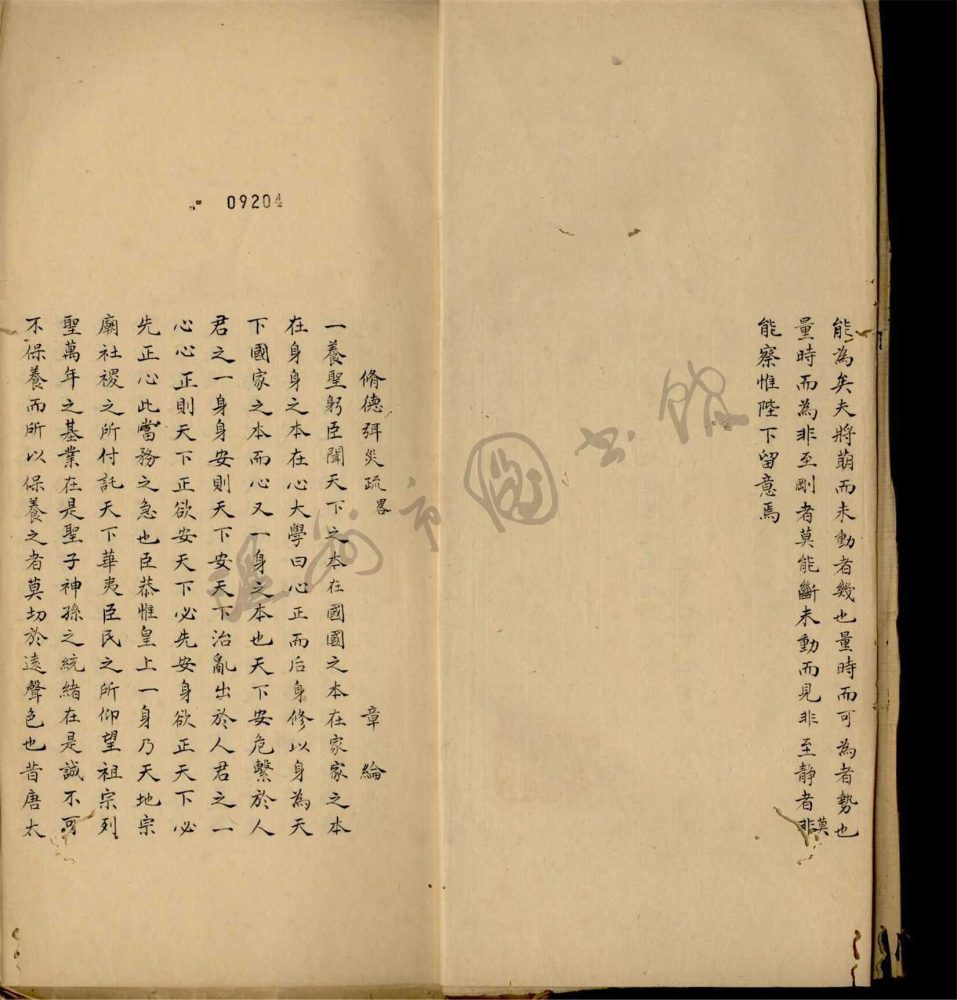 能為矣夫將萌而未動者幾也量時而可為者勢也
量時而為非至剛者莫能斷未動而見非至靜者莫
能察惟陛下留意焉
09204
脩德弭災疏畧 章綸
一養聖躬臣聞天下之本在國國之本在家家之本
在身身之本在心大學曰心正而后身修以身為天
下國家之本而心又一身之本也天下安危繫於人
君之一身身安則天下安天下治亂出於人君之一
心心正則天下正欲安天下必先安身欲正天下必
先正心此當務之急也臣恭惟皇上一身乃天地宗
廟社稷之所付託天下華夷臣民之所仰望祖宗列
聖萬年之基業在是聖子神孫之統緒在是誠不可
不保養而所以保養之者莫切於遠聲色也昔唐太
溫州市圖書館